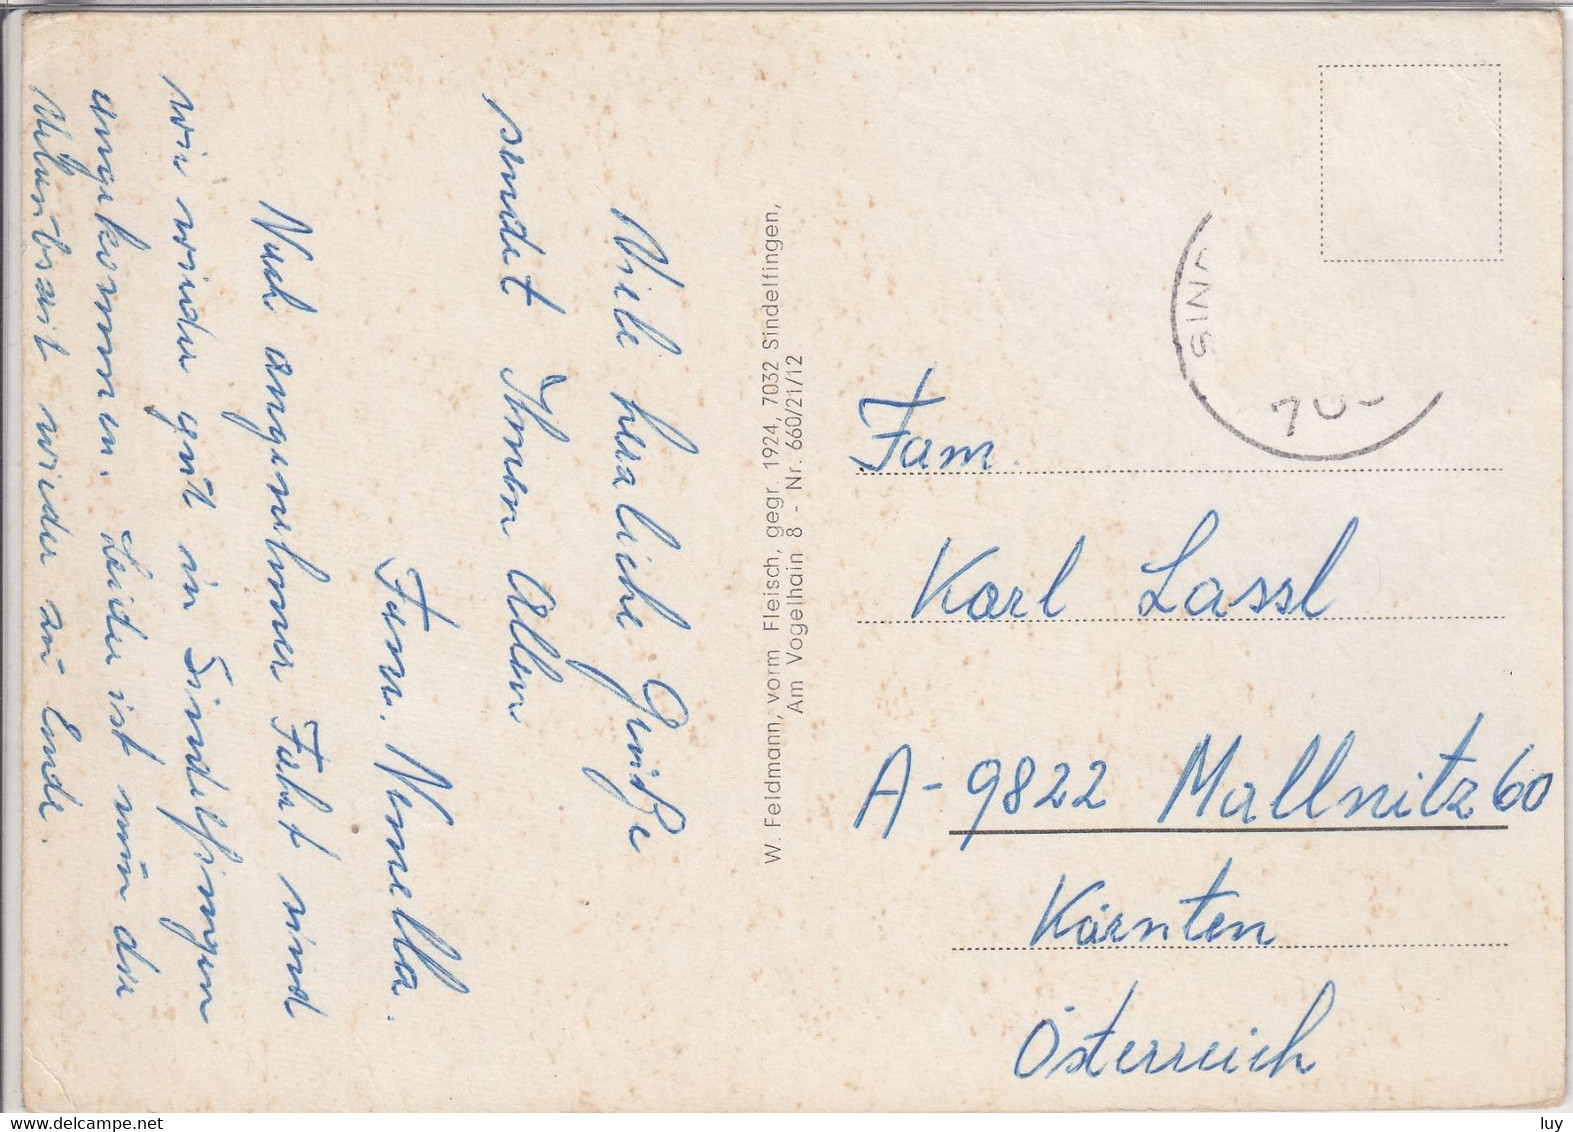 Viele herzliche Grüße
sendet Ihnen Allen
Fam. Nemella.
Nach angenehmer Fahrt sind
wir wieder gut in Sindelfingen
angekommen. Leider ist nun die
wieder zu Ende.
W. Feldmann, vorm Fleisch, gegr. 1924, 7032 Sindelfingen,
Am Vogelhain 8 - Nr. 660/21/12
SIND
Fam.
Karl Lassl
A-9822 Mallnitz 60
Kärnten
Österreich
luy
www.delcampe.net